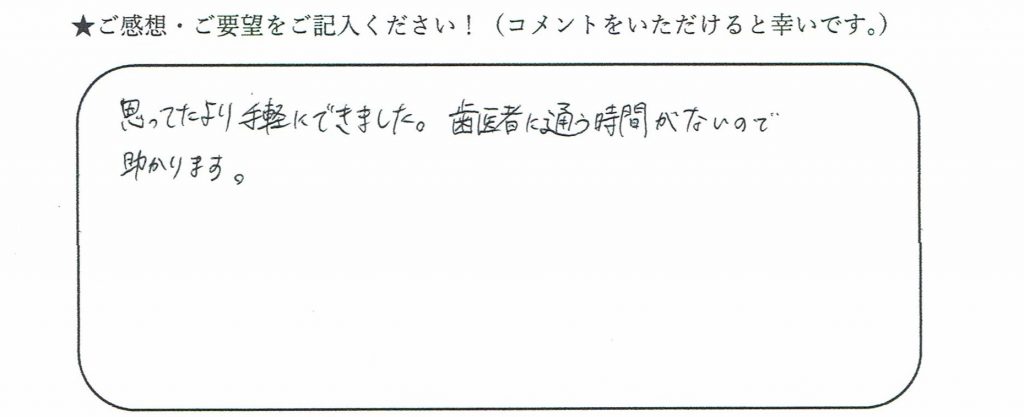 ★ご感想・ご要望をご記入ください！（コメントをいただけると幸いです。）
思ってたより手軽にできました。歯医者に通う時間がないので
助かります。